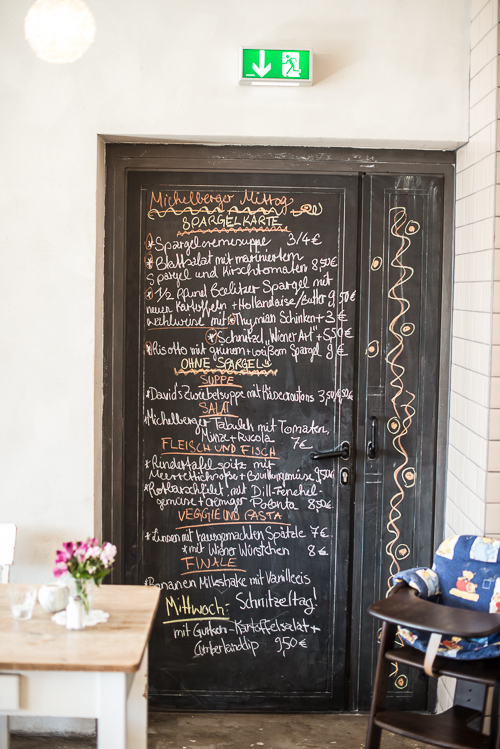 Michelberger Mittag
SPARGELKARTE
* Spargelcremesuppe 3/4 €
* Blattsalat mit mariniertem
Spargel und Kirschtomaten 8,50€
* 1/2 Pfund Beelitzer Spargel mit
neuen Kartoffeln + Hollandaise/Butter 9,50€
wahlweise mit * Thymian Schinken + 3 €
* Schnitzel „Wiener Art" + 5,50€
* Risotto mit grünem + weißem Spargel 9 €
„OHNE SPARGEL"
SUPPE
* David's Zwiebelsuppe mit Käsecroutons 3,50/4,50€
SALAT
Michelberger Tabouleh mit Tomaten,
Minze + Rucola 7€
FLEISCH UND FISCH
* Rindertafelspitz mit
Meerrettichsoße + Bouillongemüse 9,50€
* Rotbarschfilet mit Dill-Fenchel-
gemüse + cremiger Polenta 8,50€
VEGGIE UND PASTA
* Linsen mit hausgemachten Spätzle 7€
* mit Wiener Würstchen 8 €
FINALE
* Bananen Milkshake mit Vanilleeis
Mittwoch: Schnitzeltag!
mit Gurken-Kartoffelsalat +
9,50€